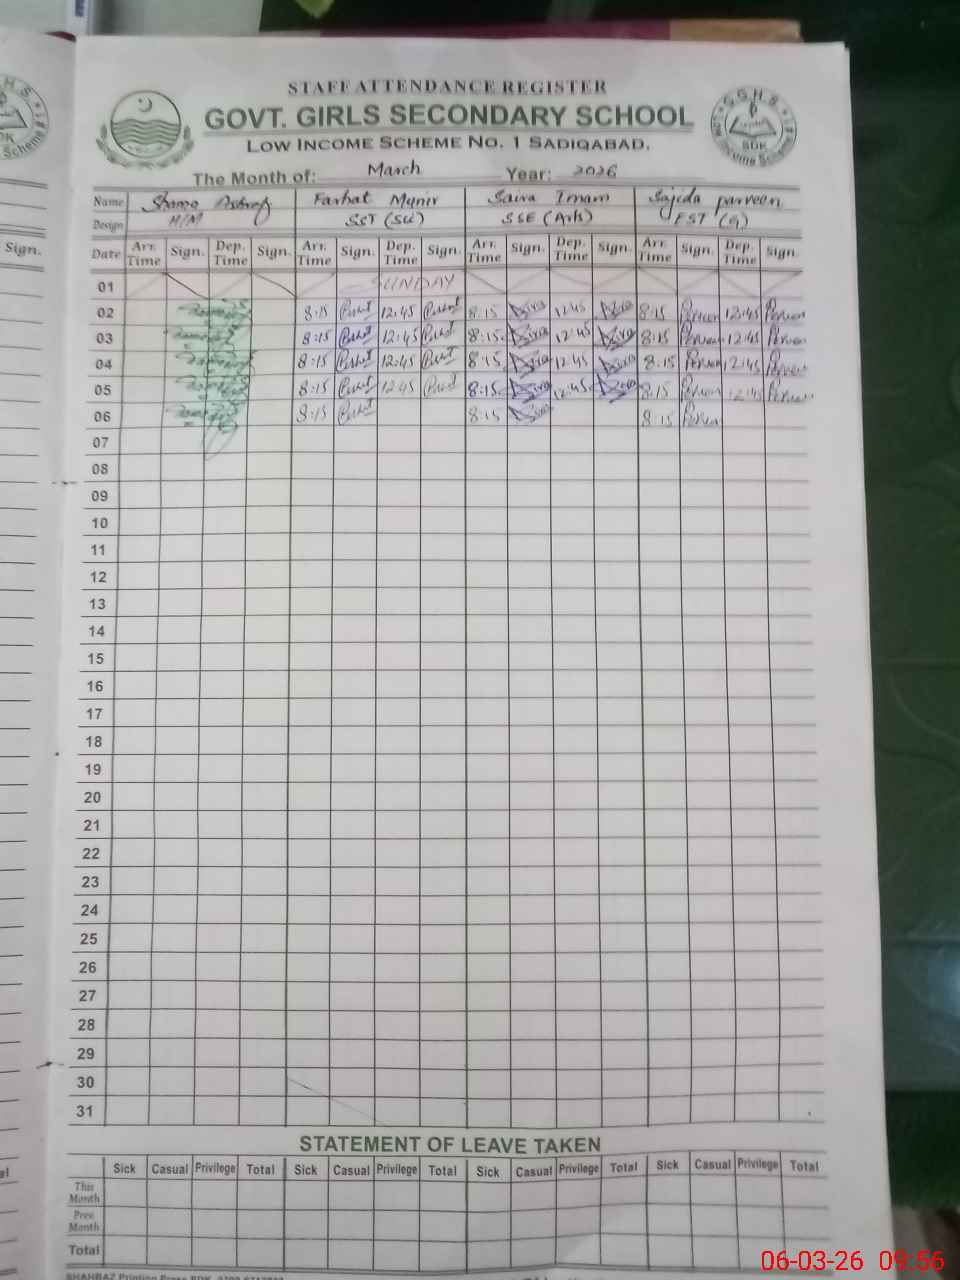 STAFF ATTENDANCE REGISTER
GOVT. GIRLS SECONDARY SCHOOL
LOW INCOME SCHEME NO. 1 SADIQABAD.
G.G.H.S.
SDK
The Month of: March Year: 2026
Name Shama Ashraf Farhat Munir Saira Imam Sajida parveen
Design: H/M SST (Sci) SSE (Arb) EST (G)
Sign. Date Arr. Time Sign. Dep. Time Sign. Arr. Time Sign. Dep. Time Sign. Arr. Time Sign. Dep. Time Sign. Arr. Time Sign. Dep. Time Sign.
01 SUNDAY
02 8:15 12:45 8:15 12:45 8:15 Perveen 12:45 Perveen
03 8:15 12:45 8:15 12:45 8:15 Perveen 12:45 Perveen
04 8:15 12:45 8:15 12:45 8:15 Perveen 12:45 Perveen
05 8:15 12:45 8:15 12:45 8:15 Perveen 12:45 Perveen
06 8:15 8:15 8:15 Perveen
07
08
09
10
11
12
13
14
15
16
17
18
19
20
21
22
23
24
25
26
27
28
29
30
31
STATEMENT OF LEAVE TAKEN
Sick Casual Privilege Total Sick Casual Privilege Total Sick Casual Privilege Total Sick Casual Privilege Total
This Month
Prev Month
Total
SHAHBAZ Printing Press SDK.
06-03-26 09:56